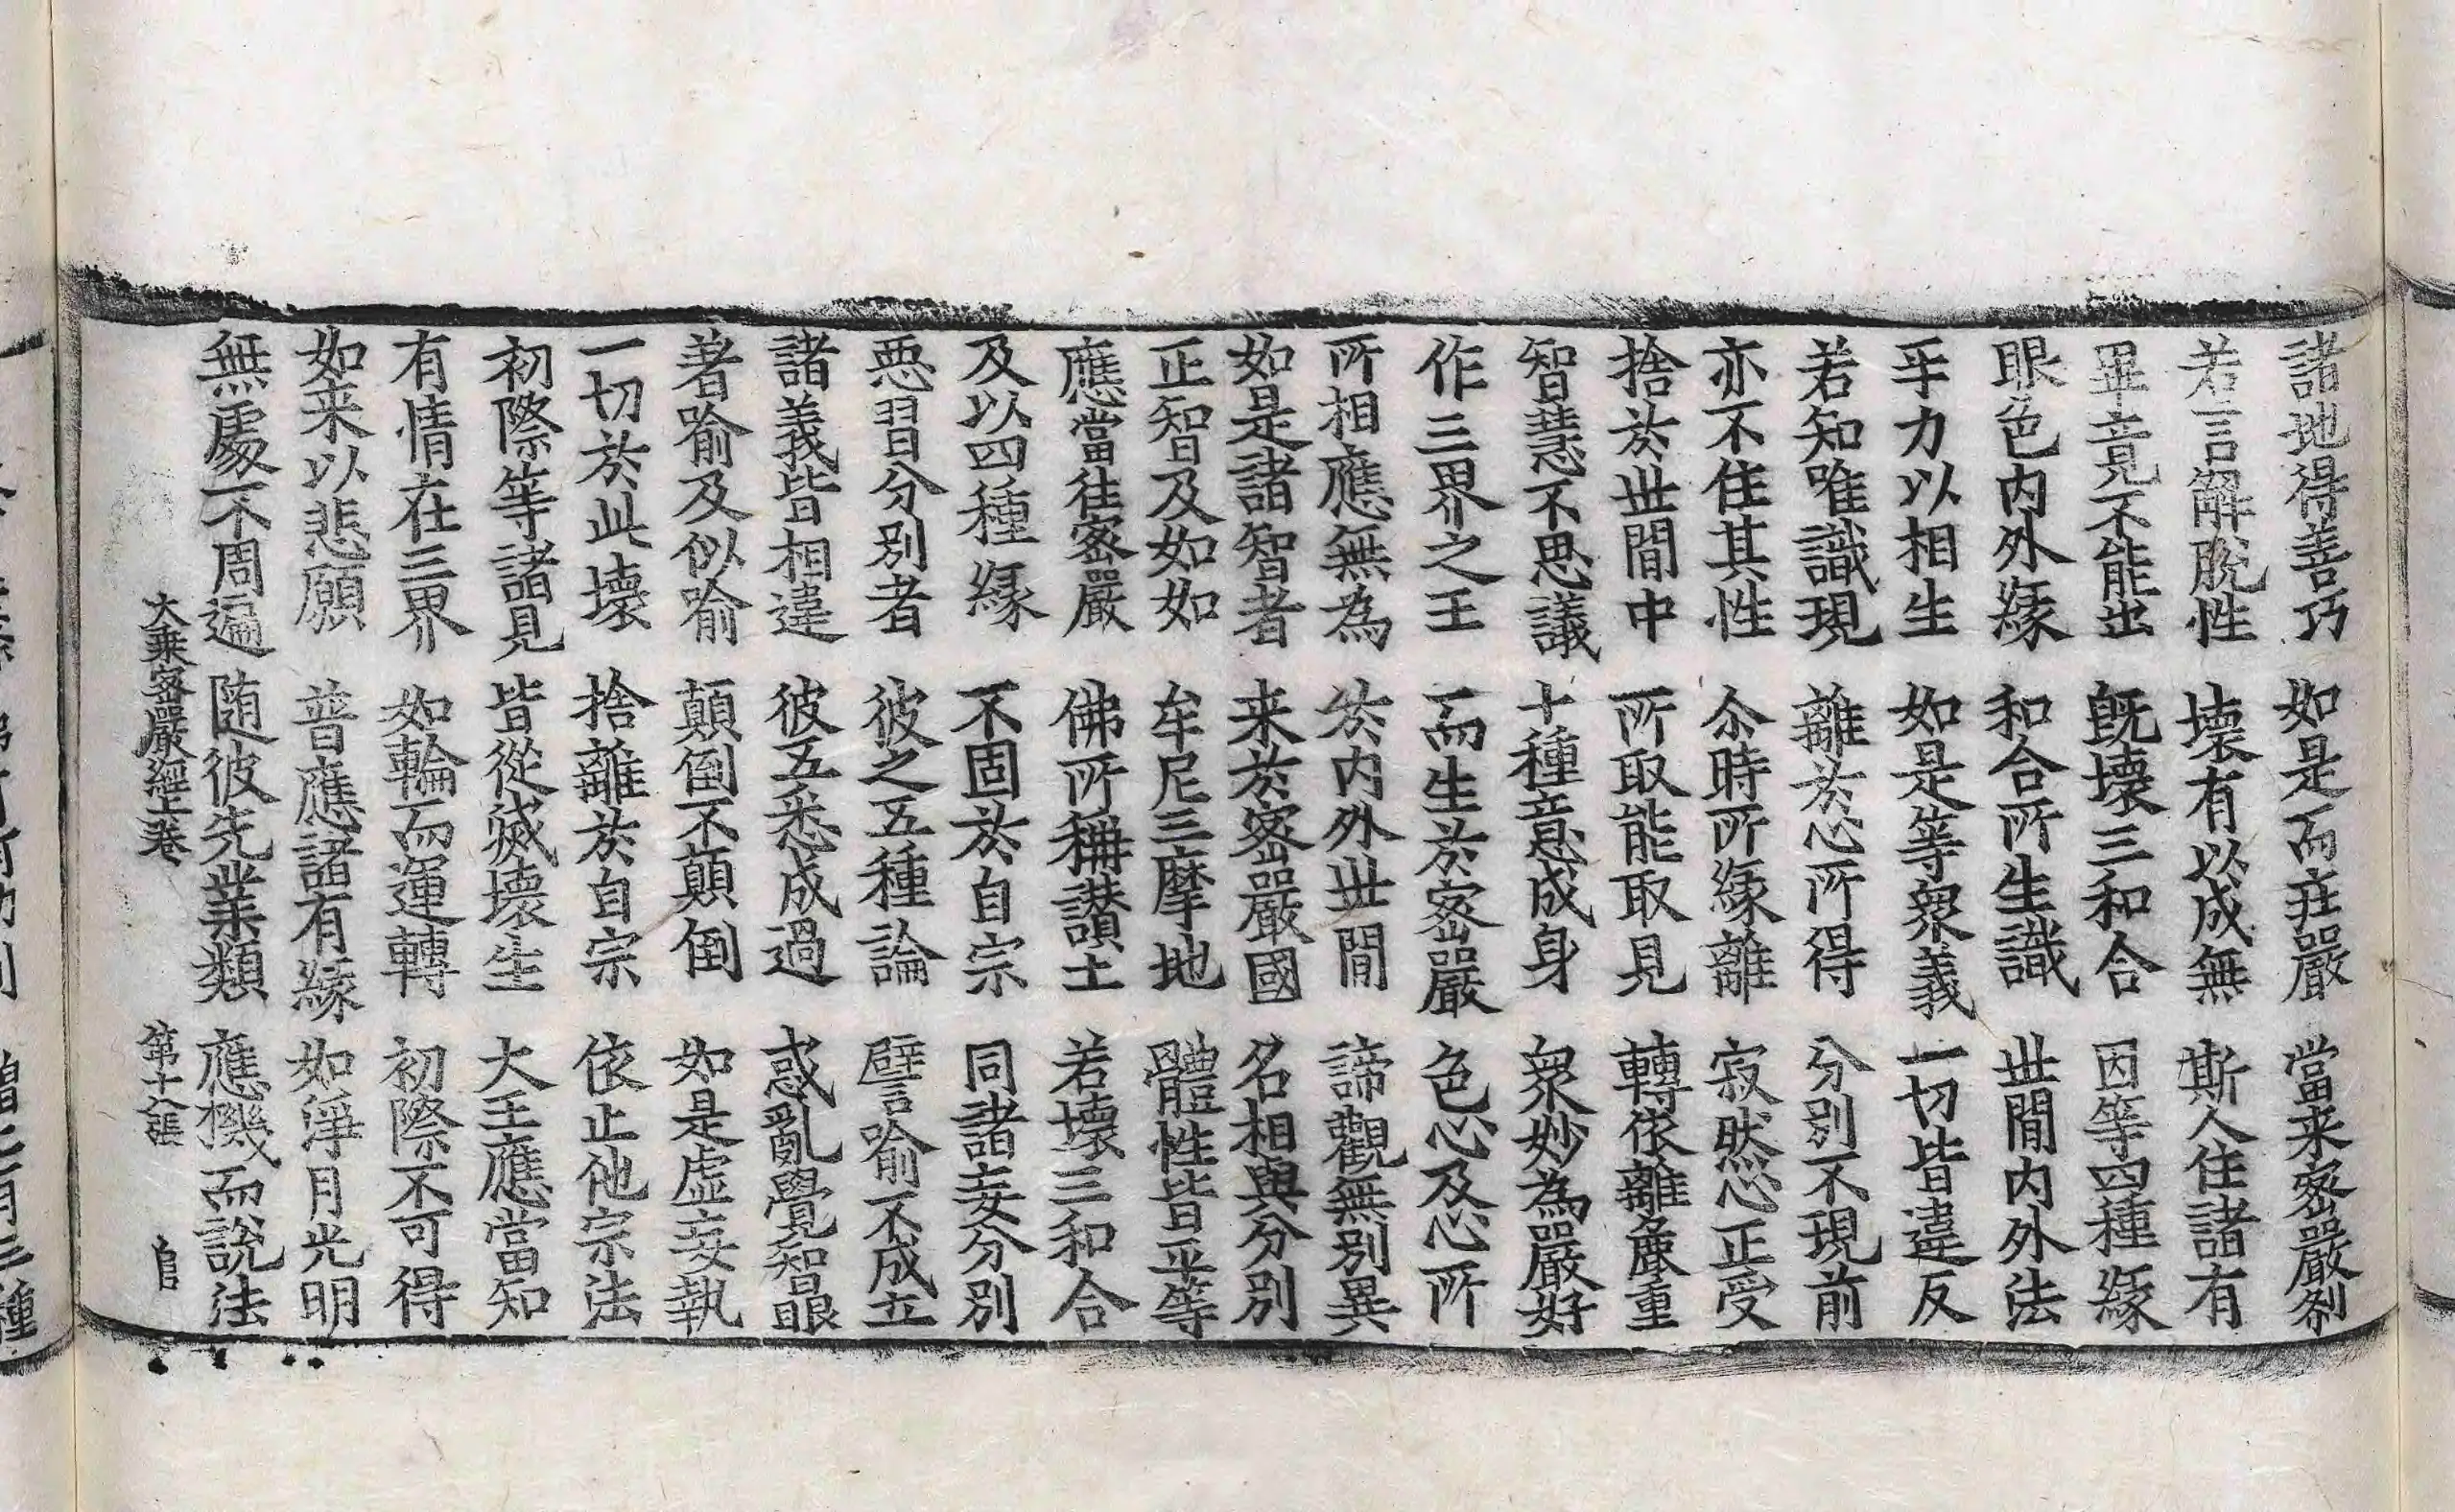 諸地得善巧　如是而莊嚴　當来宻嚴刹
若言解脫性　壞有以成無　斯人住諸有
畢竟不能出　旣壞三和合　因等四種緣
眼色內外緣　和合所生識　世間內外法
㸦力以相生　如是等衆義　一切皆違反
若知唯識現　離於心所得　分別不現前
亦不住其性　尒時所緣離　寂然心正受
捨於世間中　所取能取見　轉依離麁重
智慧不思議　十種意成身　衆妙為嚴好
作三界之王　而生於宻嚴　色心及心所
所相應無為　於內外世間　諦觀無別異
如是諸智者　来於宻嚴國　名相與分別
正智及如如　牟尼三摩地　體性皆平等
應當往宻嚴　佛所稱讃土　若壞三和合
及以四種緣　不固於自宗　同諸妄分別
惡習分別者　彼之五種論　譬喻不成立
諸義皆相違　彼五悉成過　惑亂覺智眼
著喻及似喻　顛倒不顛倒　如是虛妄執
一切於此壞　捨離於自宗　依止他宗法
初際等諸見　皆從滅壞生　大王應當知
有情在三界　如輪而運轉　初際不可得
如来以悲願　普應諸有緣　如淨月光明
無處不周遍　随彼先業類　應機而說法
大乗宻嚴經上卷　第十八張